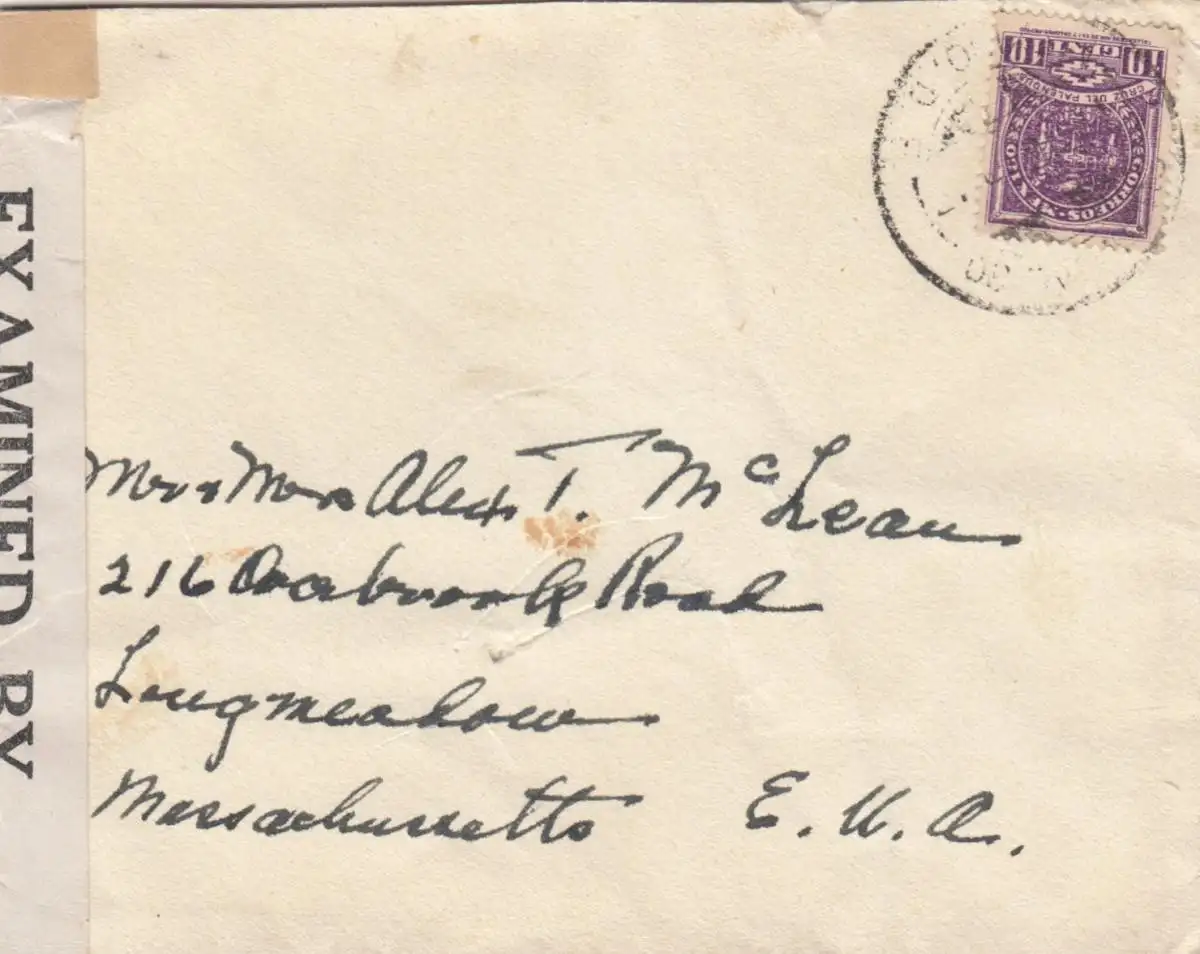 EXAMINED BY
10 CENT 10
CRUZ DEL PALENQUE
CORREOS MEXICO
Mr & Mrs Alex T. McLean
216 Overbrook Road
Longmeadow
Massachussetts E. U. A.